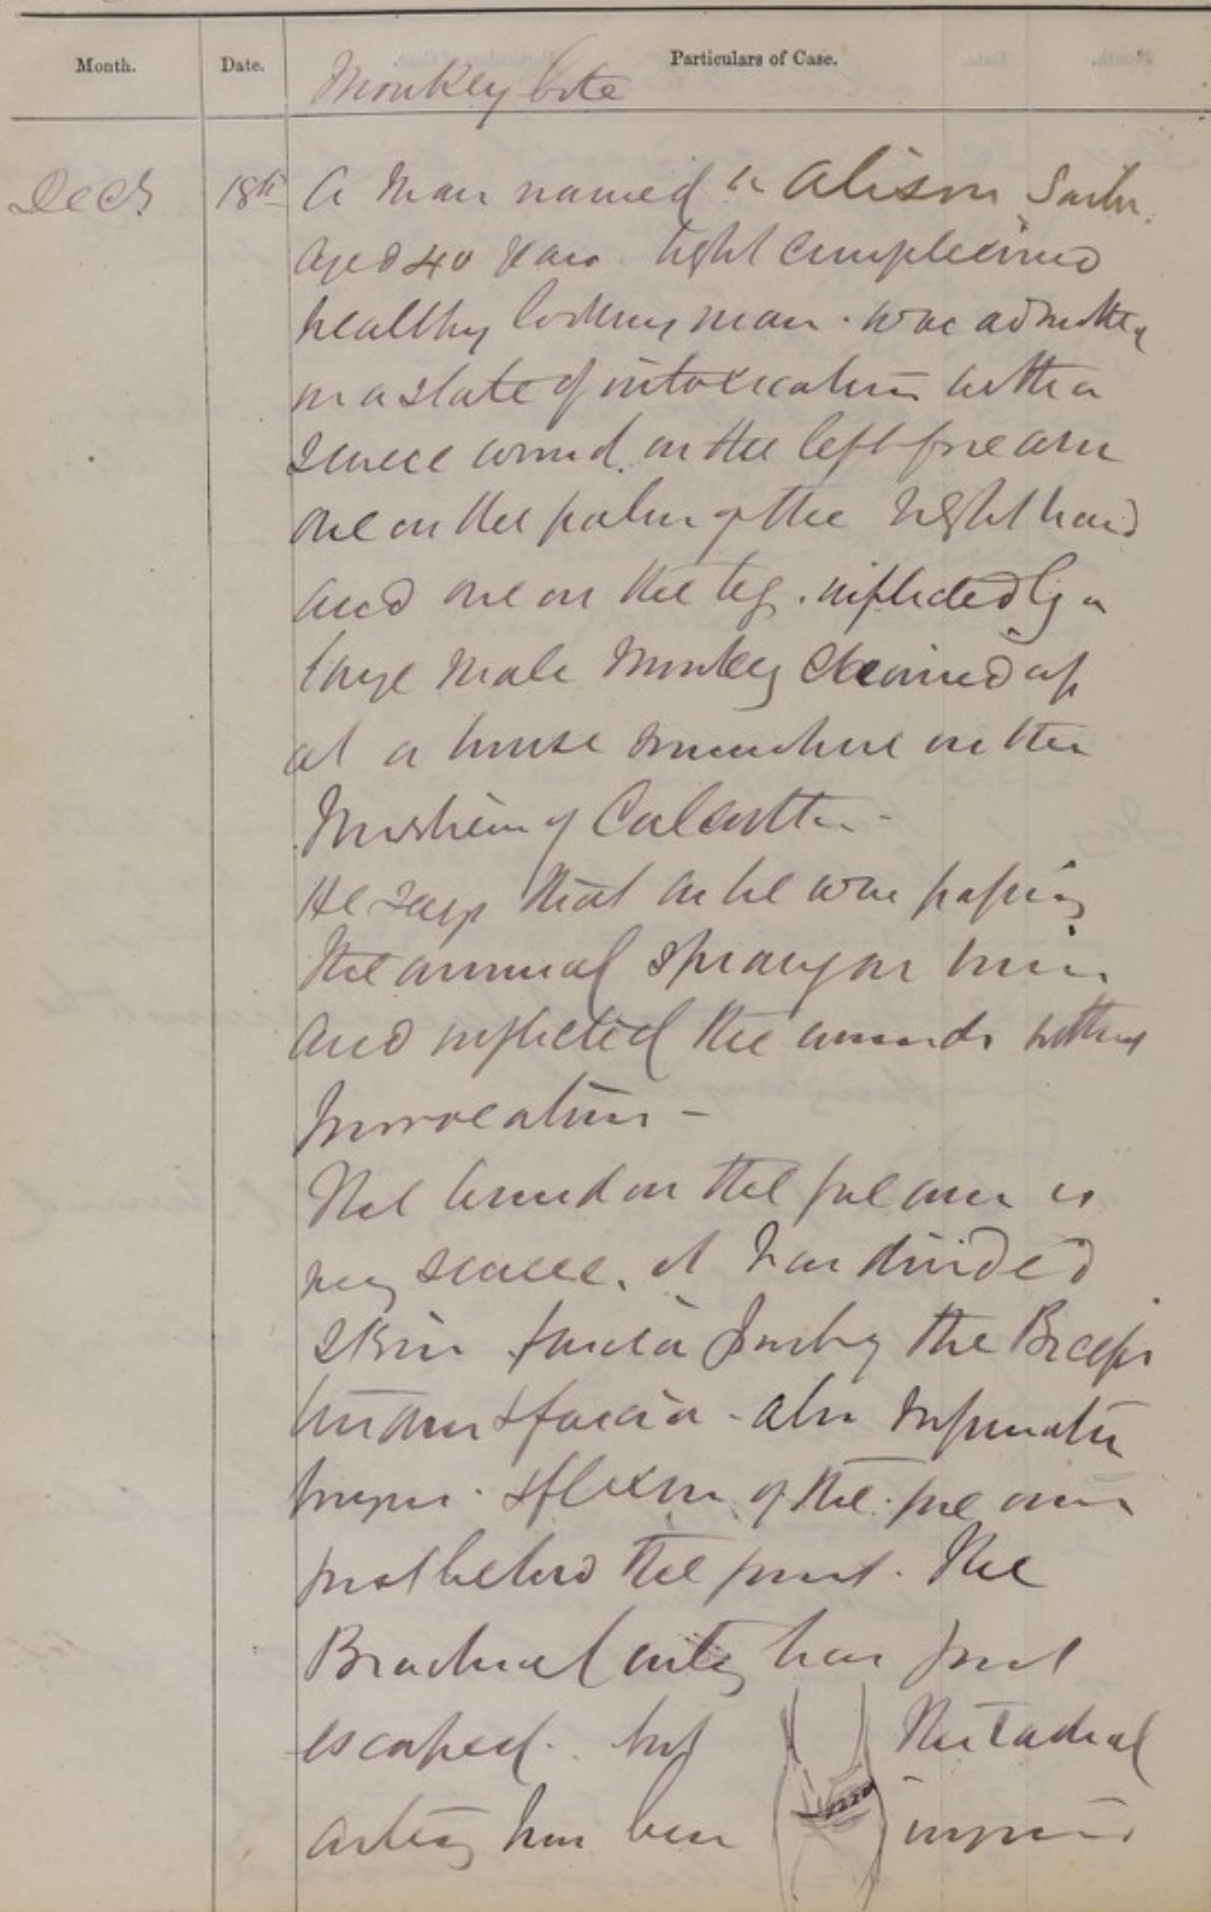 Month. Date. Particulars of Case.
Monkey bite
Decr 18th A man named Alison Sailor.
aged 40 years light complexioned
healthy looking man. was admitted
in a state of intoxication with a
severe wound on the left fore arm
one on the palm of the right hand
and one on the leg. inflicted by a
large male monkey chained up
at a house somewhere in the
of Calcutta -
He says that as he was passing
the animal sprang on him
and inflicted the wounds without
provocation -
The wound on the fore arm is
very severe. it has divided
skin fascia partly the Biceps
tendon & fascia - also Supinator
& flexors of the fore arm
just below the joint. The
Brachial artery has just
escaped. but the radial
artery has been injured